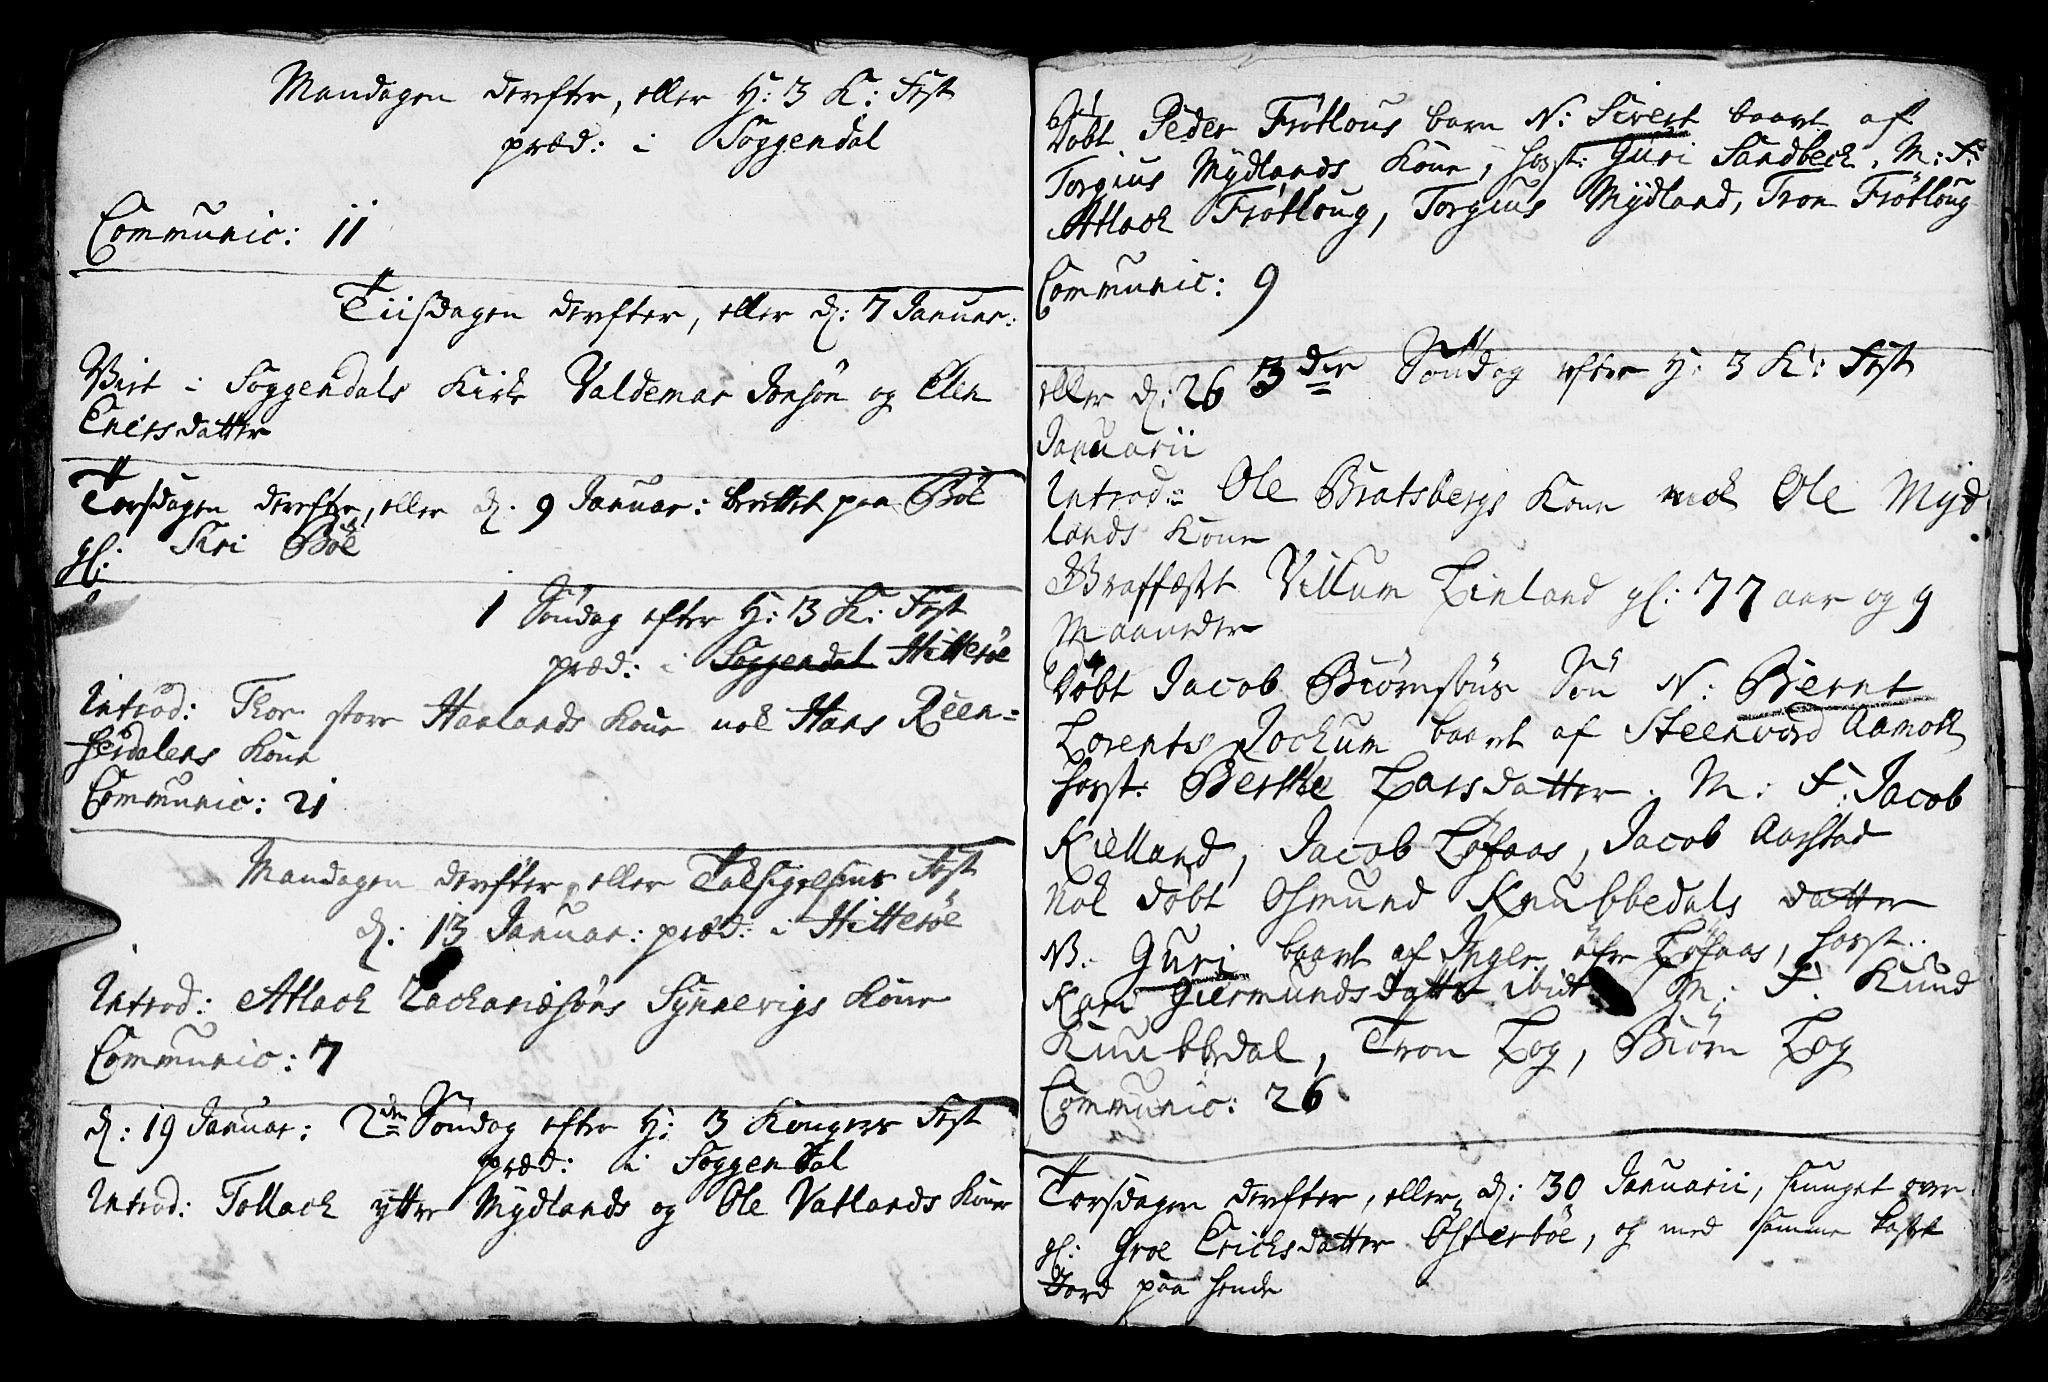 Mandagen derefter, eller H: 3 K: Fest
præd: i Soggendal
Communic: 11
Tiisdagen derefter, eller d: 7 Januar:
Viet i Soggendals Kirke Valdemar Jonsøn og Elen
Ericsdatter
Torsdagen derefter, eller d. 9 Januar: berettet paa Böe
gl: Siri Böe
1 Söndag efter H: 3 K: Fest
præd: i Soggendal Hitteröe
Introd: Thor store Haalands Kone nok Hans Reen=
herdalens Kone
Communic: 21
Mandagen derefter, eller Taksigelsens Fest
d: 13 Januar: præd: i Hitteröe
Introd: Atlack Zachariæsöns Synnevigs Kone
Communic: 7
d: 19 Januar: 2den Söndag efter H: 3 Kongers Fest
præd: i Soggendal
Introd: Tollack yttre Mydlands og Ole Vatlands Kone
Döbt Peder Frötlous barn N: Sivert baaret af
Torgius Mydlands Kone, host: Guri Sandbeck. M: F:
Atlack Frötloug, Torgius Mydland, Tron Frötloug
Communic: 9
3der Söndag efter H: 3 K: Fest
eller d: 26
Januarii
Introd: Ole Bratsbergs Kone nok Ole Myd
lands Kone
Graffæst Villum Linland gl: 77 aar og 9
Maaneder
Döbt Jacob Biörnsöns Sön N: Bernt
Lorents Jochum baaret af Steenvord Aamodt
host: Berthe Larsdatter. M: F: Jacob
Kielland, Jacob Löfaas, Jacob Aarstad
Nok döbt Osmund Knubbedals datter
N: Guri baaret af Inger öfre Löfaas, host:
Kari Giermundsdatter ibid M: F: Knud
Knubbedal, Tron Log, Biörn Log
Communic: 26
Torsdagen derefter, eller d: 30 Januarii, siunget over
gl: Groe Erichsdatter Osterböe, og med samme kastet
Jord paa hende